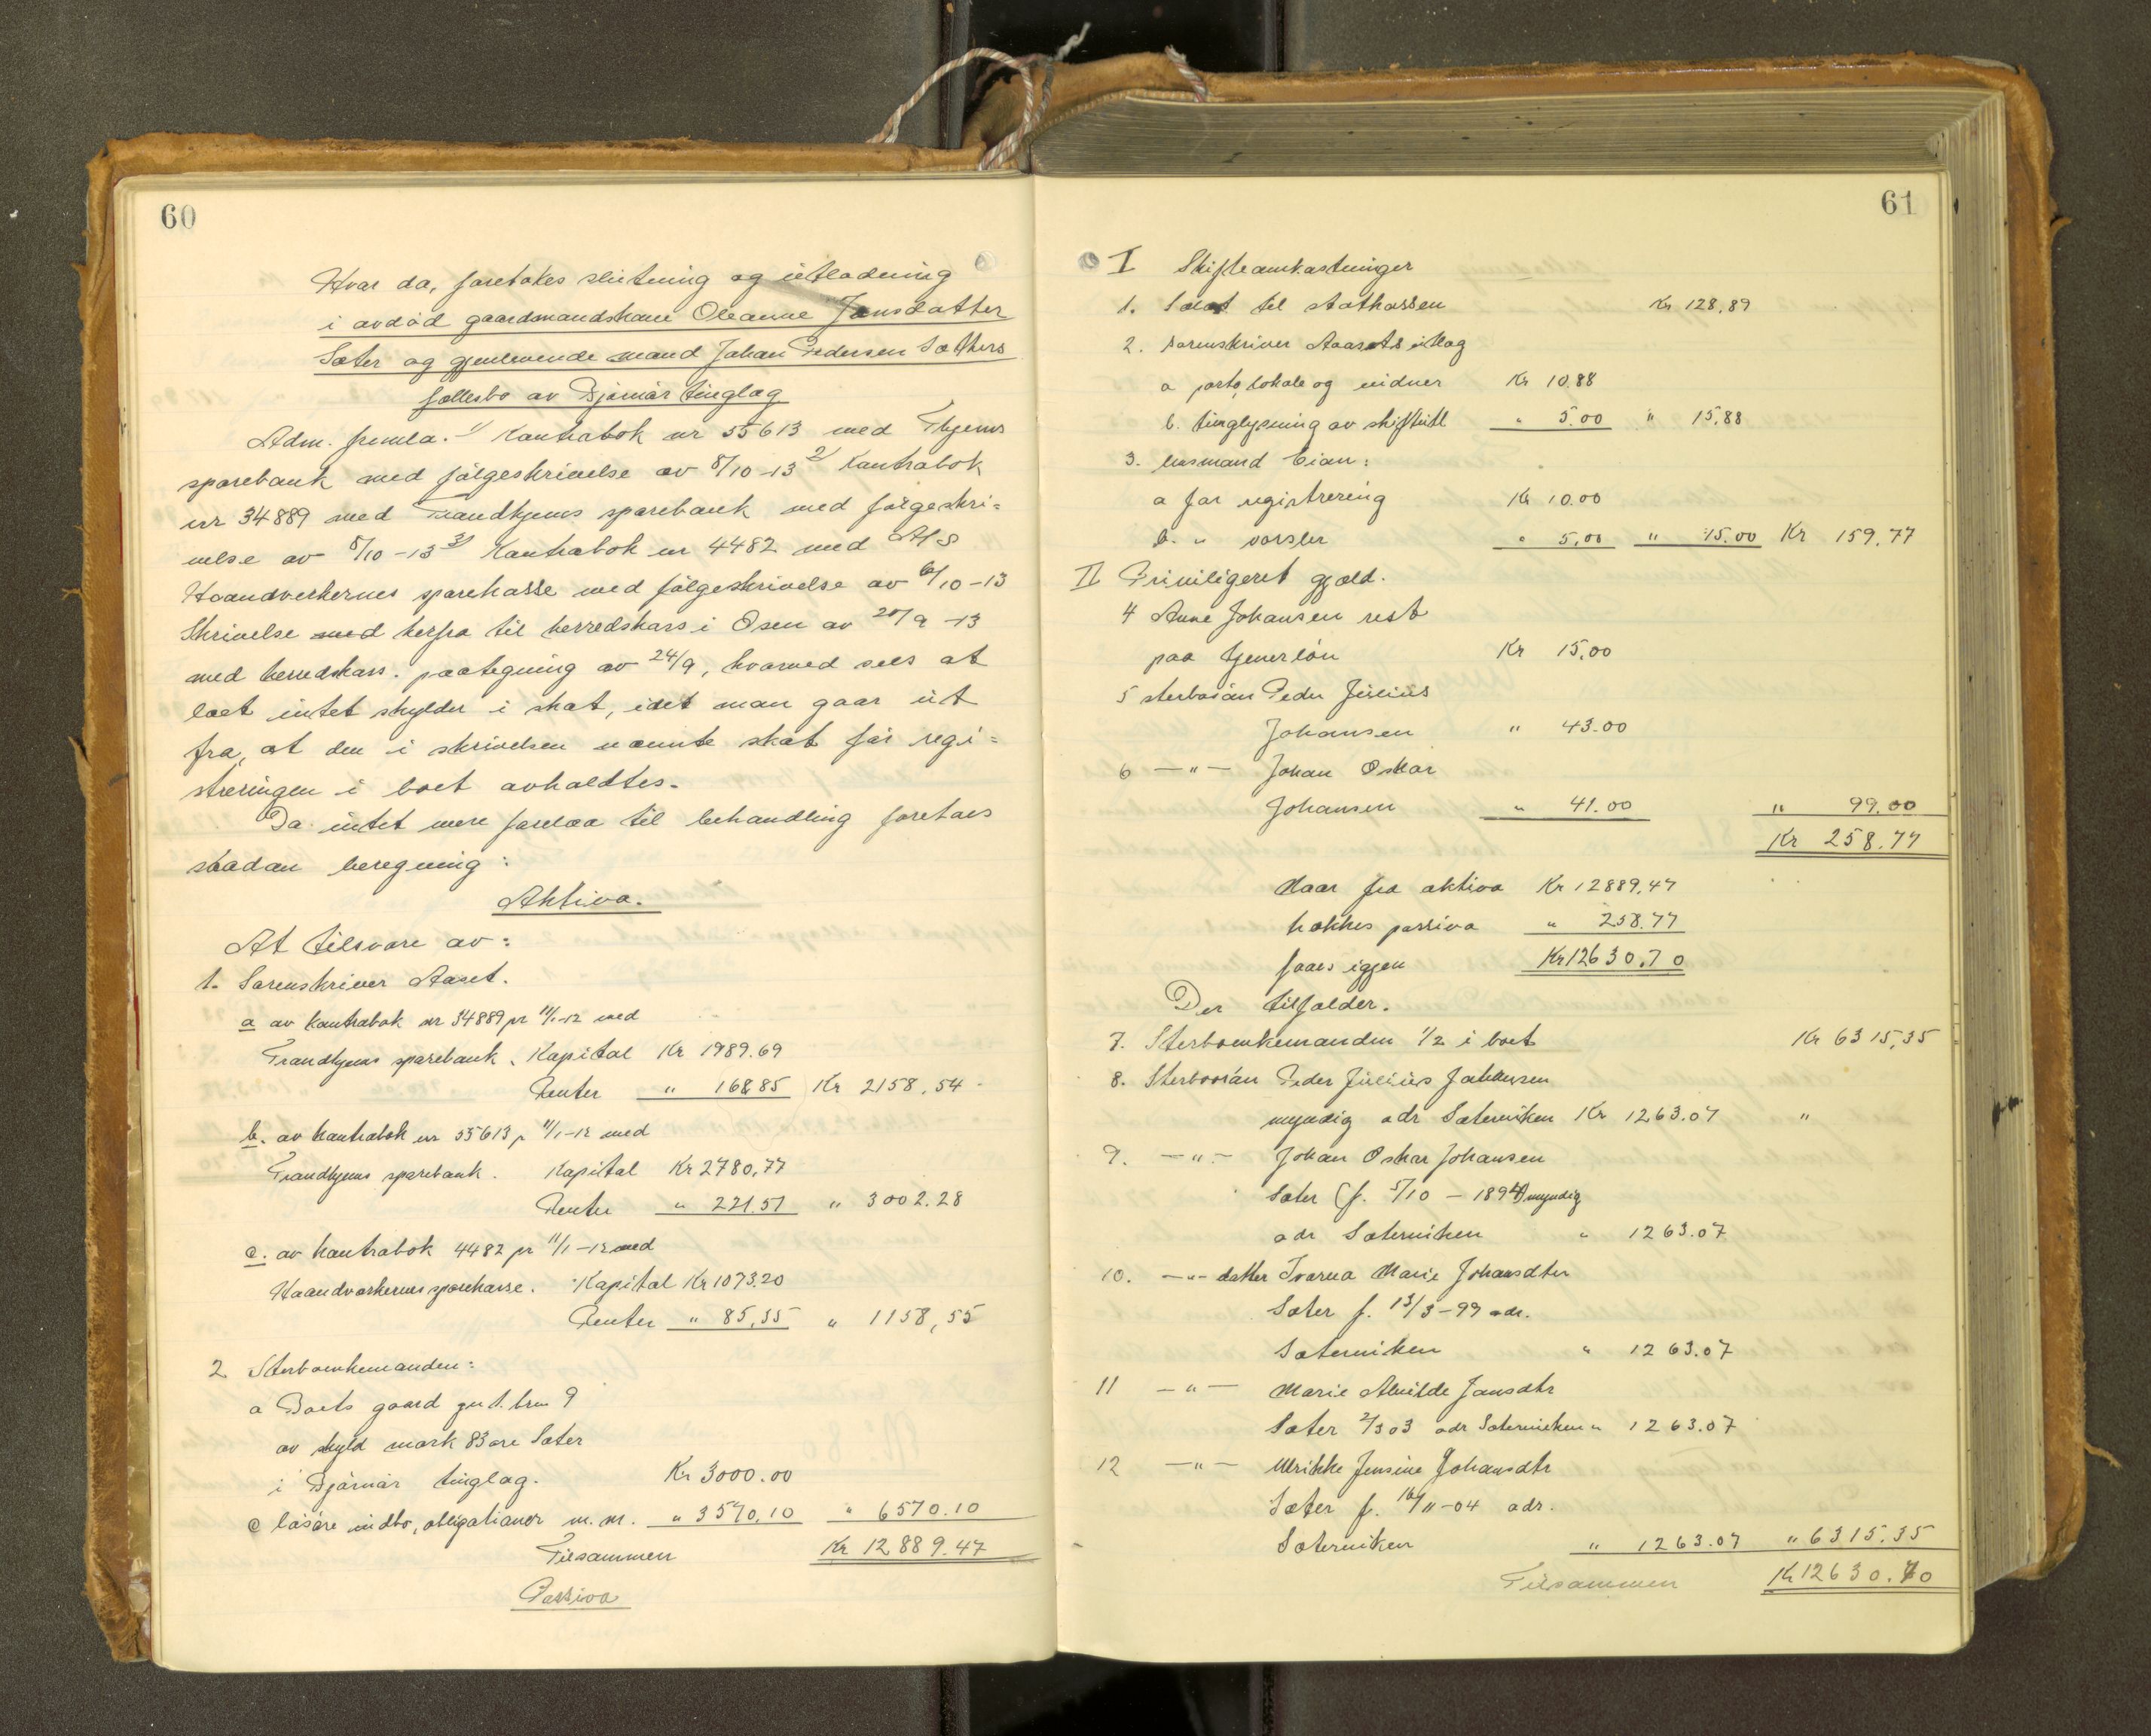 60
Hvar da, foretokes slutning og utlodning
i avdöd gaardmandskone Oleanne Jonsdatter
Sæter og gjenlevende mand Johan Pedersen Sæthers
fællesbo av Bjørnør tinglag
Adm. fremla. 1) Kontrabok nr 55613 med Thjems
sparebank med følgeskrivelse av 8/10-13 2) Kontrabok
nr 34889 med Trondhjems sparebank med følgeskri=
velse av 8/10-13 3) Kontrabok nr 4482 med A/S
Haandverkernes sparekasse med følgeskrivelse av 6/10-13
Skrivelse med herfra til herredskass i Osen av 20/9-13
med herredskass. paategning av 24/9, hvorved sees at
boet intet skylder i skat, idet man gaar ut
fra, at den i skrivelsen nævnte skat før regi=
streringen i boet avholdtes.
Da intet mere forelaa til behandling foretoes
saadan beregning:
Aktiva.
At tilsvare av:
1. Sorenskriver Aaset.
a av kontrabok nr 34889 pr 11/1-12 med
Trondhjems sparebank. Kapital Kr 1989.69
Renter " 168.85 Kr 2158,54
b. av kontrabok nr 55613 p 11/1-12 med
Trondhjems sparebank. Kapital Kr 2780,77
Renter " 221.51 " 3002.28
c. av kontrabok 4482 pr 11/1-12 med
Haandverkernes sparekasse. Kapital Kr 1073.20
Renter " 85,35 " 1158,55
2 Sterboenkemanden:
a Boets gaard gn 1. brn 9
av skyld mark 83 øre Sæter
i Bjørnør tinglag. Kr 3000.00
c løsøre indbo, obligationer m.m. " 3570,10 " 6570.10
Tilsammen Kr 12889.47
Passiva
61
I Skifteomkostninger
1. Sælat til statkassen Kr 128,89
2. Sorenskriver Aasets utlæg
a porto, lokale og vidner Kr 10.88
b. tinglysning av skifteutl " 5.00 " 15,88
3. lensmand Eian:
a for registrering Kr 10.00
b. " varsler " 5,00 " 15.00 Kr 159,77
II Priviligeret gjæld.
4 Anne Johansen rest
paa tjenerløn Kr 15,00
5 sterbosøn Peder Julius
Johansen " 43.00
6 —"— Johan Oskar
Johansen " 41.00 " 99.00
Kr 258.77
Naar fra aktiva Kr 12889.47
trækkes passiva " 258.77
faaes igjen Kr 12630.70
Der tilfalder.
7. Sterboenkemanden 1/2 i boet Kr 6315,35
8. Sterbosøn Peder Julius Johansen
myndig adr Sæterviken Kr 1263.07 "
9. —"— Johan Oskar Johansen
Sæter (f. 5/10 - 1894) myndig
adr Sæterviken " 1263.07
10. —"— datter Ivarna Marie Johansdter
Sæter f. 13/3-99 adr.
Sæterviken " 1263.07
11 —"— Marie Alvilde Jansdtr
Sæter 2/3 03 adr Sæterviken " 1263.07
12 —"— Ulrikke Jensine Johansdtr
Sæter f. 16/11-04 adr.
Sæterviken " 1263.07 " 6315.35
Tilsammen Kr 12630.70